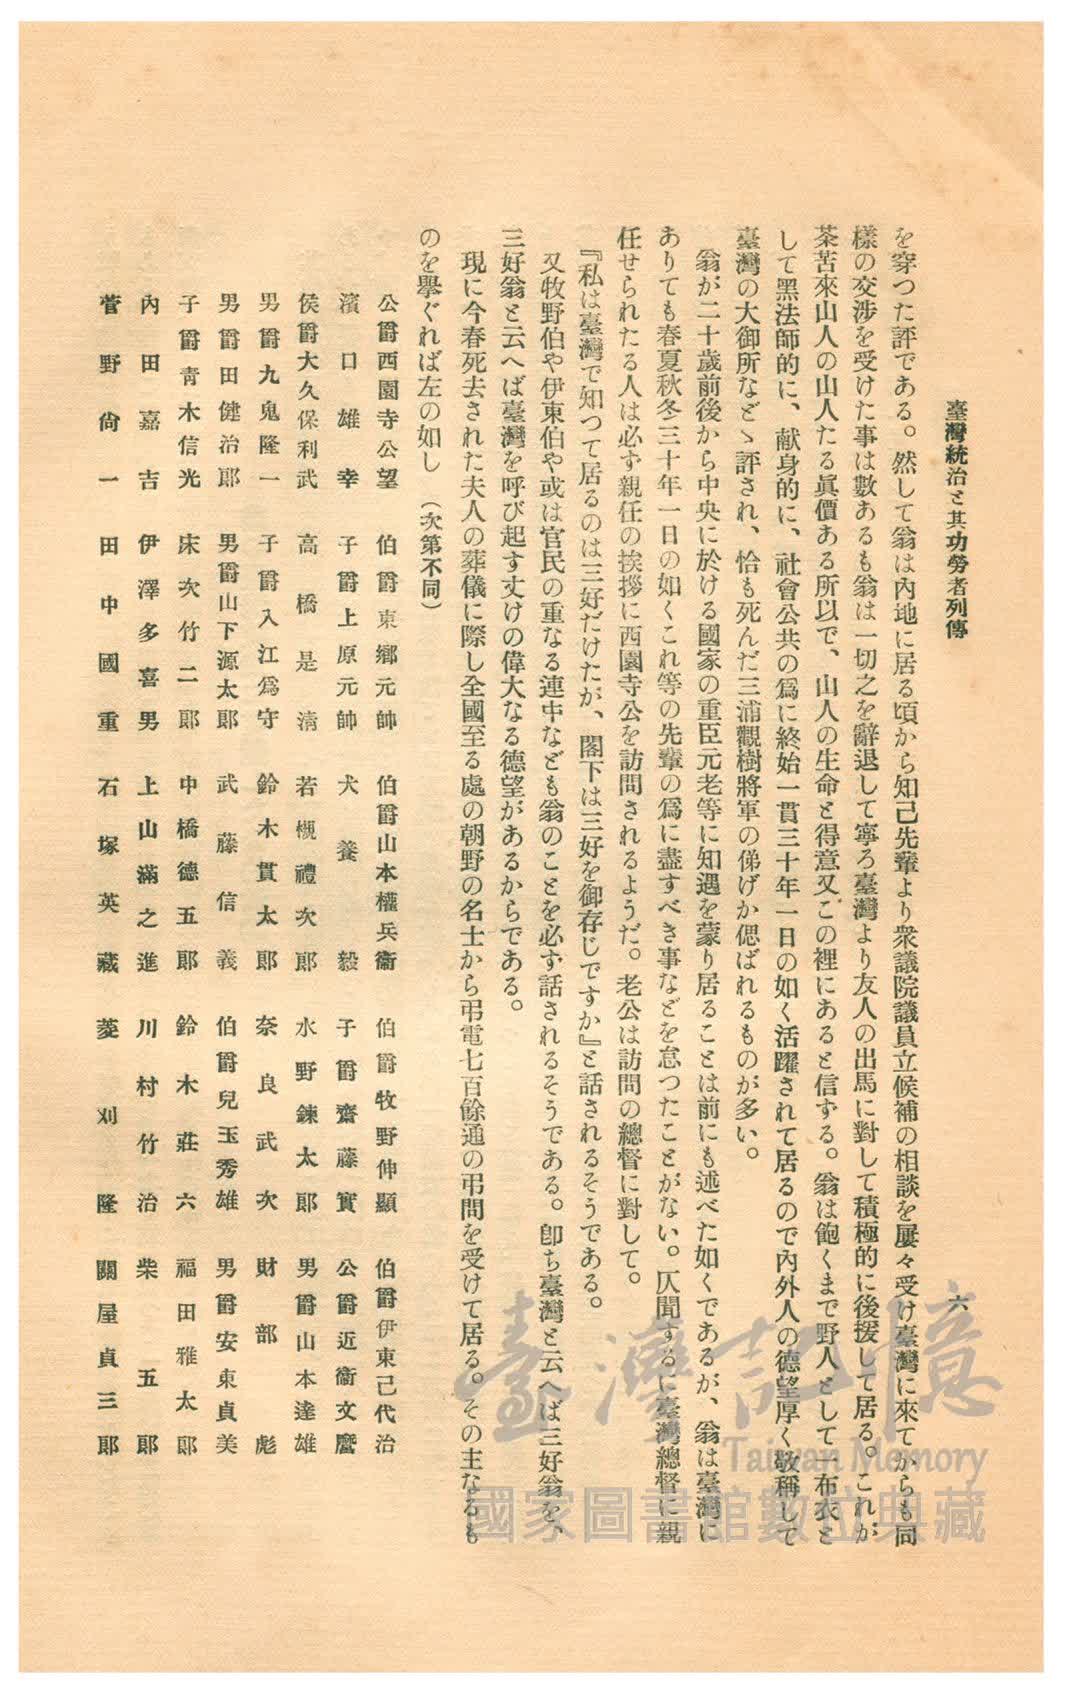 臺灣統治と其功勞者列傳
六
を穿つた評である。然して翁は內地に居る頃から知己先輩より衆議院議員立候補の相談を屢々受け臺灣に來てからも同
樣の交涉を受けた事は數あるも翁は一切之を辭退して寧ろ臺灣より友人の出馬に對して積極的に後援して居る。これが
茶苦來山人の山人たる眞價ある所以で、山人の生命と得意又この裡にあると信ずる。翁は飽くまで野人として一布衣と
して黑法師的に、献身的に、社會公共の爲に終始一貫三十年一日の如く活躍されて居るので內外人の德望厚く敬稱して
臺灣の大御所などゝ評され、恰も死んだ三浦觀樹將軍の俤げか偲ばれるものが多い。
翁が二十歲前後から中央に於ける國家の重臣元老等に知遇を蒙り居ることは前にも述べた如くであるが、翁は臺灣に
ありても春夏秋冬三十年一日の如くこれ等の先輩の爲に盡すべき事などを怠つたことがない。仄聞するに臺灣總督に親
任せられたる人は必ず親任の挨拶に西園寺公を訪問されるようだ。老公は訪問の總督に對して。
『私は臺灣で知つて居るのは三好だけたが、閣下は三好を御存じですか』と話されるそうである。
又牧野伯や伊東伯や或は官民の重なる連中なども翁のことを必ず話されるそうである。卽ち臺灣と云へば三好翁を、
三好翁と云へば臺灣を呼び起す丈けの偉大なる德望があるからである。
現に今春死去された夫人の葬儀に際し全國至る處の朝野の名士から弔電七百餘通の弔問を受けて居る。その主なるも
のを擧ぐれば左の如し（次第不同）
公爵西園寺公望 伯爵東鄕元帥 伯爵山本權兵衞 伯爵牧野伸顯 伯爵伊東己代治
濱口雄幸 子爵上原元帥 犬養毅 子爵齋藤實 公爵近衞文麿
侯爵大久保利武 高橋是淸 若槻禮次郞 水野鍊太郞 男爵山本達雄
男爵九鬼隆一 子爵入江爲守 鈴木貫太郞 奈良武次 財部彪
男爵田健治郞 男爵山下源太郞 武藤信義 伯爵兒玉秀雄 男爵安東貞美
子爵靑木信光 床次竹二郞 中橋德五郞 鈴木莊六 福田雅太郞
內田嘉吉 伊澤多喜男 上山滿之進 川村竹治 柴五郞
菅野尙一 田中國重 石塚英藏 菱刈隆 關屋貞三郞
臺灣記憶
Taiwan Memory
國家圖書館數位典藏